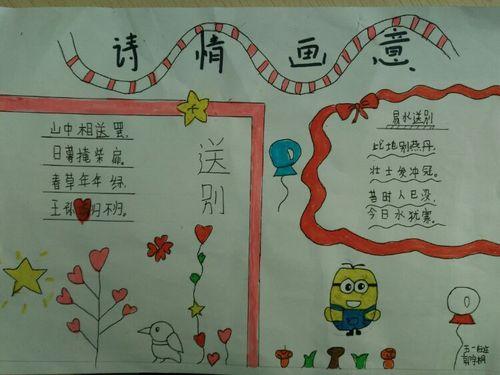 诗情画意
山中相送罢，
日暮掩柴扉。
春草年年绿，
王孙归不归。
送别
易水送别
此地别燕丹，
壮士发冲冠。
昔时人已没，
今日水犹寒。